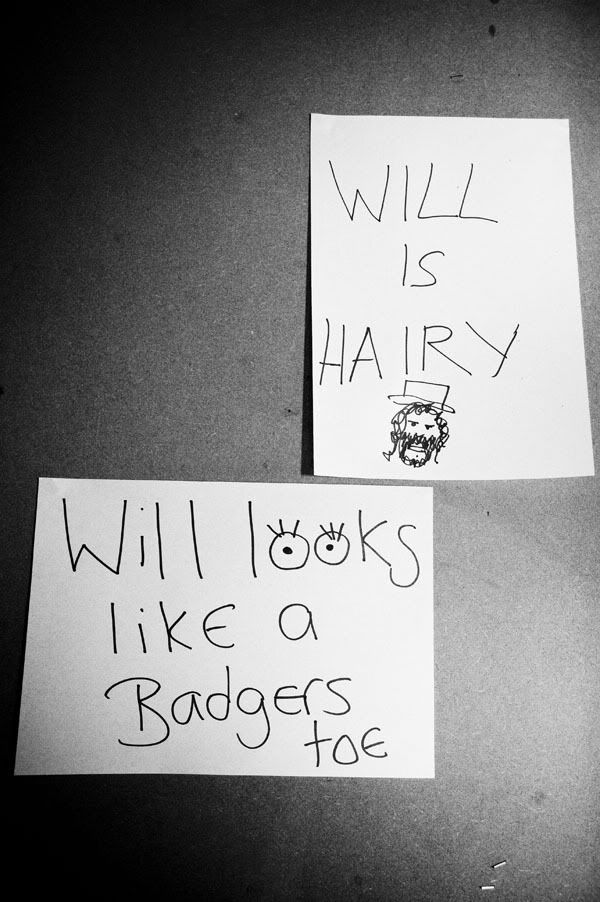 WILL
IS
HAIRY
Will looks
like a
Badgers
toe